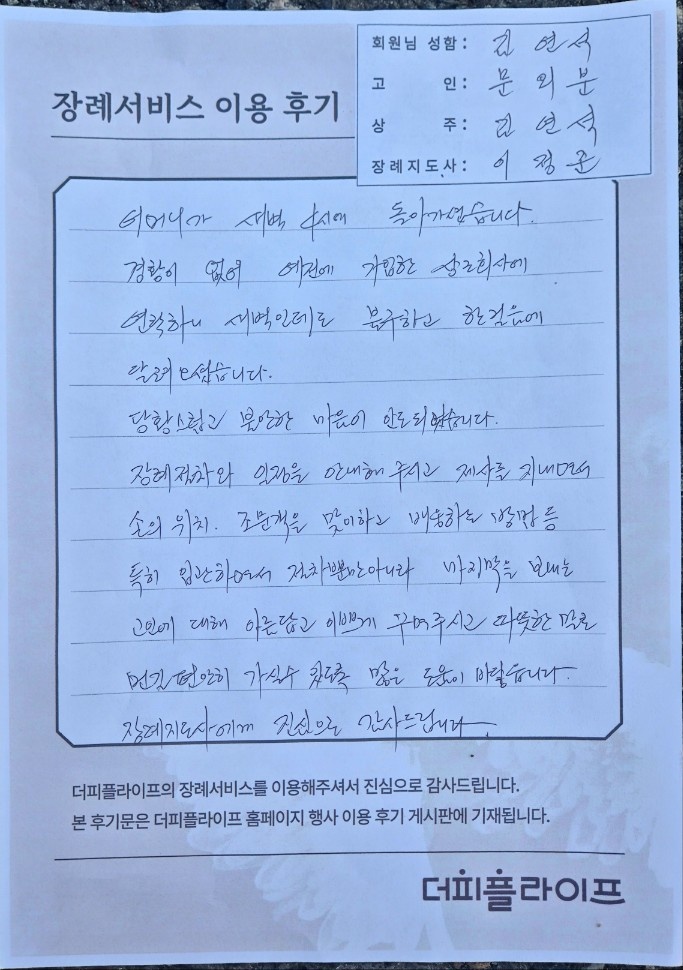 장례서비스 이용 후기
회원님 성함: 김연석
고 인: 문외분
상 주: 김연석
장례지도사: 이정준
어머니가 새벽 4시에 돌아가셨습니다.
경황이 없어 예전에 가입한 상조회사에
연락하니 새벽인데도 불구하고 한걸음에
달려오셨습니다.
당황스럽고 불안한 마음이 안도되었습니다.
장례절차와 일정을 안내해 주시고 제사를 지내면서
손의 위치. 조문객을 맞이하고 배웅하는 방법 등
특히 입관하면서 절차뿐만아니라 마지막을 보내는
고인에 대해 아름답고 이쁘게 꾸며주시고 따뜻한 말로
먼길 편안히 가실수 있도록 많은 도움이 바랍습니다.
장례지도사에게 진심으로 감사드립니다.
더피플라이프의 장례서비스를 이용해주셔서 진심으로 감사드립니다.
본 후기문은 더피플라이프 홈페이지 행사 이용 후기 게시판에 기재됩니다.
더피플라이프